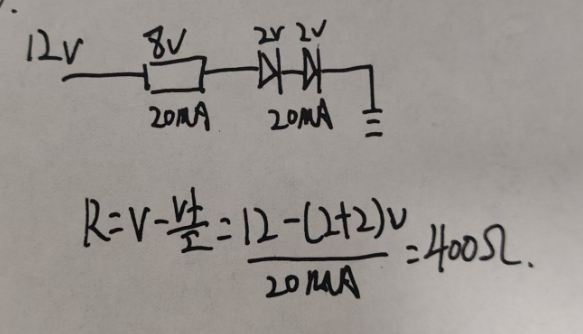 12V 8V 2V 2V
20mA 20mA
R=V-Vf/I=12-(2+2)V/20mA=400Ω.